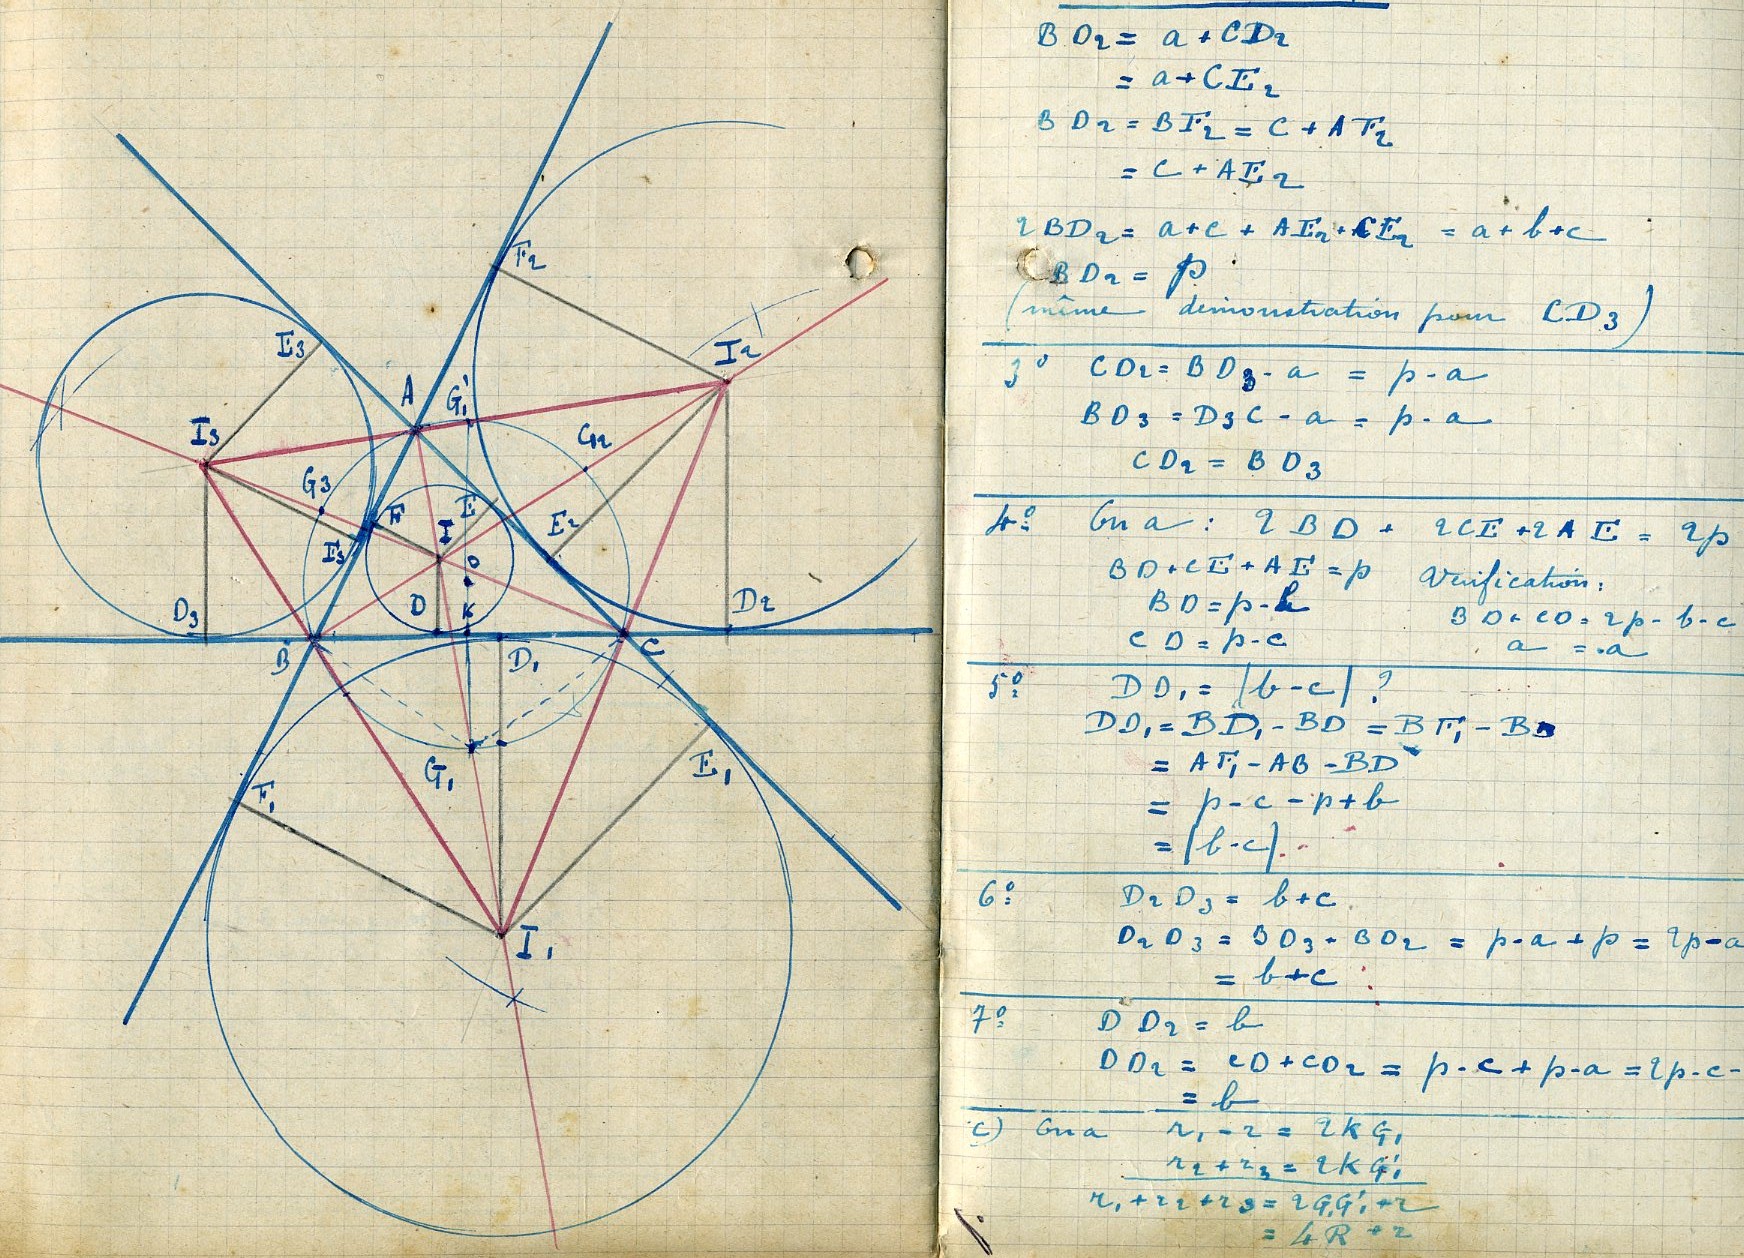 F2
E3
I2
A
G'1
I3
G2
G3
F
E
E2
I
F3
O
D3
D
K
D2
B
D1
C
G1
E1
F1
I1
BD2 = a + CD2
= a + CE2
BD2 = BF2 = c + AF2
= c + AE2
2BD2 = a + c + AE2 + CE2 = a + b + c
BD2 = p
(même démonstration pour CD3)
3° CD2 = BD3 - a = p - a
BD3 = D3C - a = p - a
CD2 = BD3
4° On a : 2BD + 2CE + 2AE = 2p
BD + CE + AE = p Vérification :
BD = p - b BD + CD = 2p - b - c
CD = p - c a = a
5° DD1 = |b-c| ?
DD1 = BD1 - BD = BF1 - BD
= AF1 - AB - BD
= p - c - p + b
= |b-c|.
6° D2D3 = b + c
D2D3 = BD3 + BD2 = p - a + p = 2p - a
= b + c
7° DD2 = b
DD2 = CD + CD2 = p - c + p - a = 2p - c -
= b
c) On a r1 - r = 2KG1
r2 + r3 = 2KG'1
r1 + r2 + r3 = 2G1G'1 + r
= 4R + r